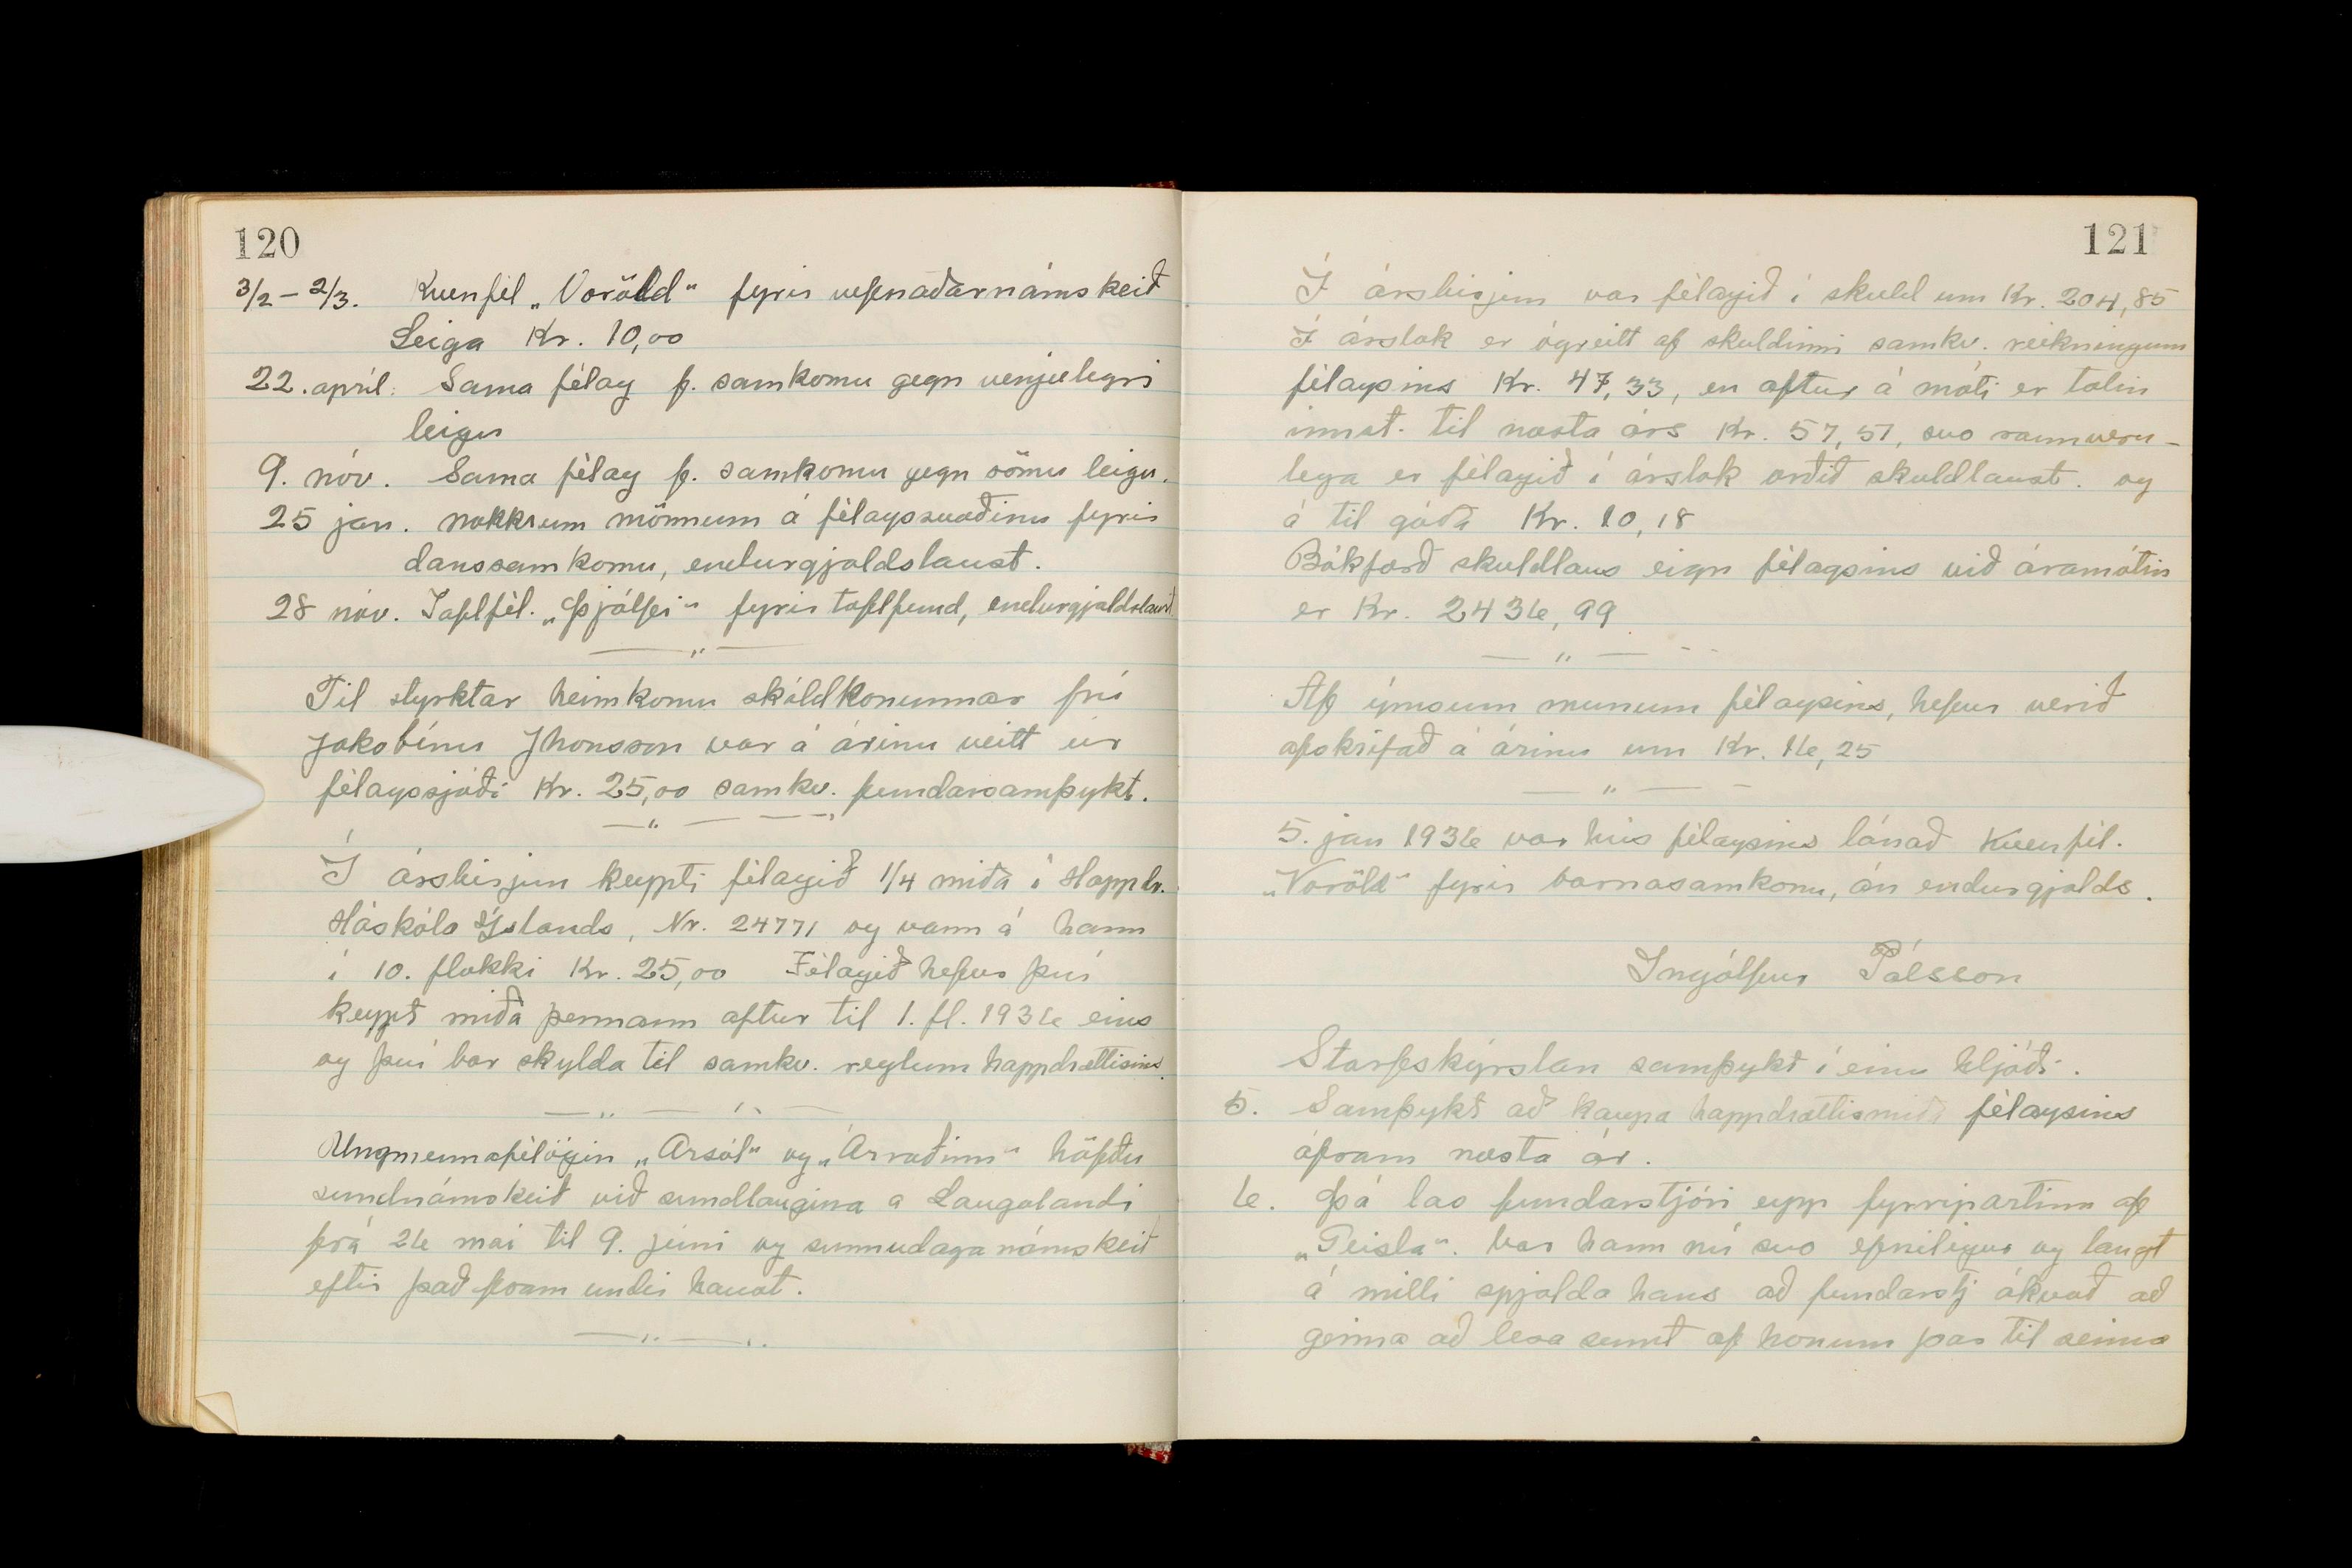 120
3/2 - 2/3. Kvenfél „Voröld" fyrir vefnaðarnámskeið
Leiga Kr. 10,00
22. apríl. Sama félag f. samkomu gegn venjulegri
leigu
9. nóv. Sama félag f. samkomu gegn sömu leigu.
25 jan. nokkrum mönnum á félagssvæðinu fyrir
danssamkomu, endurgjaldslaust.
28 nóv. Taflfél. „Þjálfi" fyrir taflfund, endurgjaldslaust
— „ —
Til styrktar heimkomu skáldkonunnar frú
Jakobínu Jhonsson var á árinu veitt úr
félagssjóði Kr. 25,00 samkv. fundarsamþykt.
— „ — — —
Í ársbirjun keypti félagið 1/4 miða í Happdr.
Háskóla Íslands, Nr. 24771 og vann á hann
í 10. flokki Kr. 25,00 Félagið hefur því
keypt miða þennann aftur til 1. fl. 1936 eins
og því bar skylda til samkv. reglum happdrættisins.
— „ — „ —
Ungmennafélögin „Ársól" og „Árroðinn" höfðu
sundnámskeið við sundlaugina a Laugalandi
frá 26 mai til 9. júni og sunnudaga námskeið
eftir það fram undir haust.
— „ — „
121
Í ársbirjun var félagið í skuld um Kr. 204,85
Í árslok er ógreitt af skuldinni samkv. reikningum
félagsins Kr. 47,33, en aftur á móti er talin
innst. til næsta árs Kr. 57,51, svo raunveru-
lega er félagið í árslok orðið skuldlaust. og
á til góða Kr. 10,18
Bókfærð skuldlaus eign félagsins við áramótin
er Kr. 2436,99
— „ —
Af ýmsum munum félagsins, hefur verið
afskrifað á árinu um Kr. 16,25
— „ — -
5. jan 1936 var hús félagsins lánað Kvenfél.
„Voröld" fyrir barnasamkomu, án endurgjalds.
Ingólfur Pálsson
Starfsskýrslan samþykt í einu hljóði.
5. Samþykt að kaupa happdrættismiða félagsins
áfram næsta ár.
6. Þá las fundarstjóri upp fyrripartinn af
„Geisla". Var hann nú svo efnilegur og langt
á milli spjalda hans að fundarstj ákvað að
geima að lesa sumt af honum þar til seinna